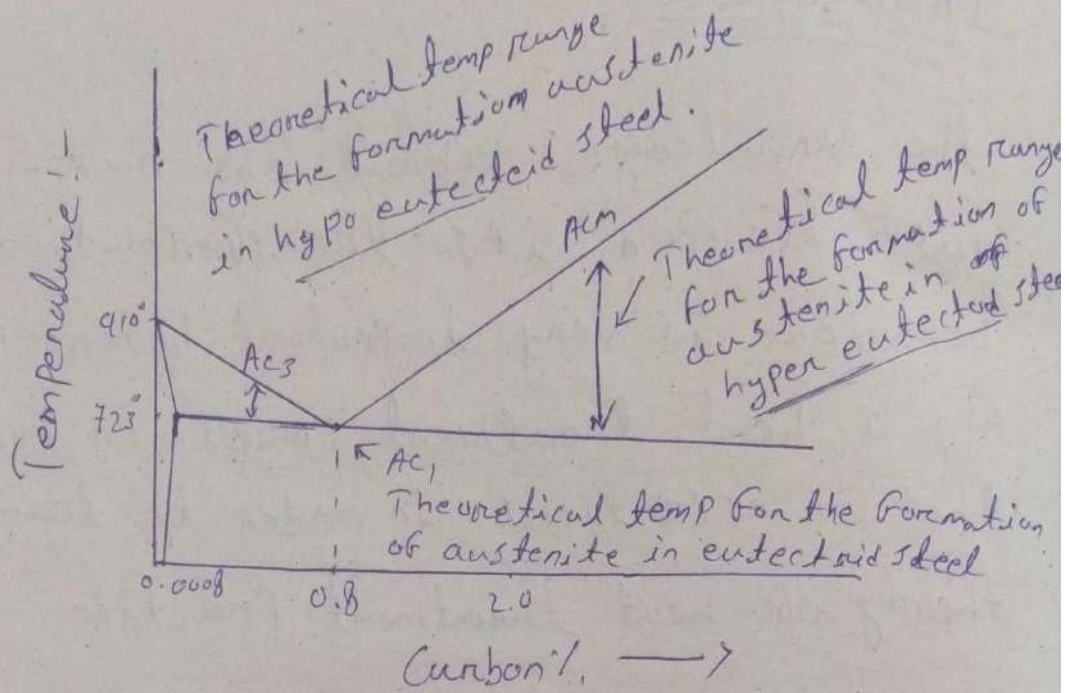 Theoretical temp runge
for the formatiom austenite
in hypo eutecteid steel.
Temperature :-
ACM
Theoretical temp range
for the formation of
austenite in of
hyper eutectoid stee
910°
AC3
723°
AC1
Theoretical temp for the formation
of austenite in eutectoid steel
0.0008
0.8
2.0
Curbon% →